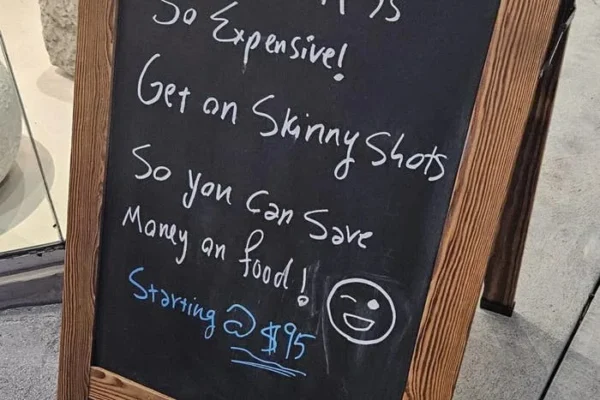 So Expensive!
Get on Skinny Shots
So you can Save
Money on food!
Starting @ $95